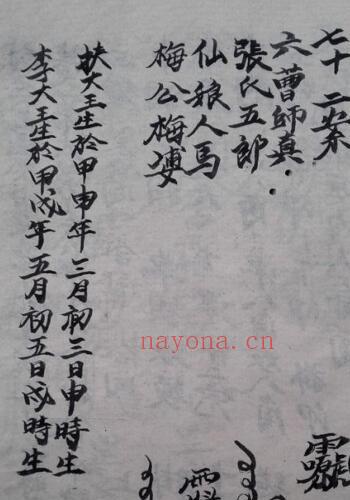 七十二案
六曹師真
張氏五郎
仙娘人馬
梅公梅婆
扶大王生於甲申年三月初三日申時生
李大王生於甲戌年五月初五日戌時生
nayona.cn